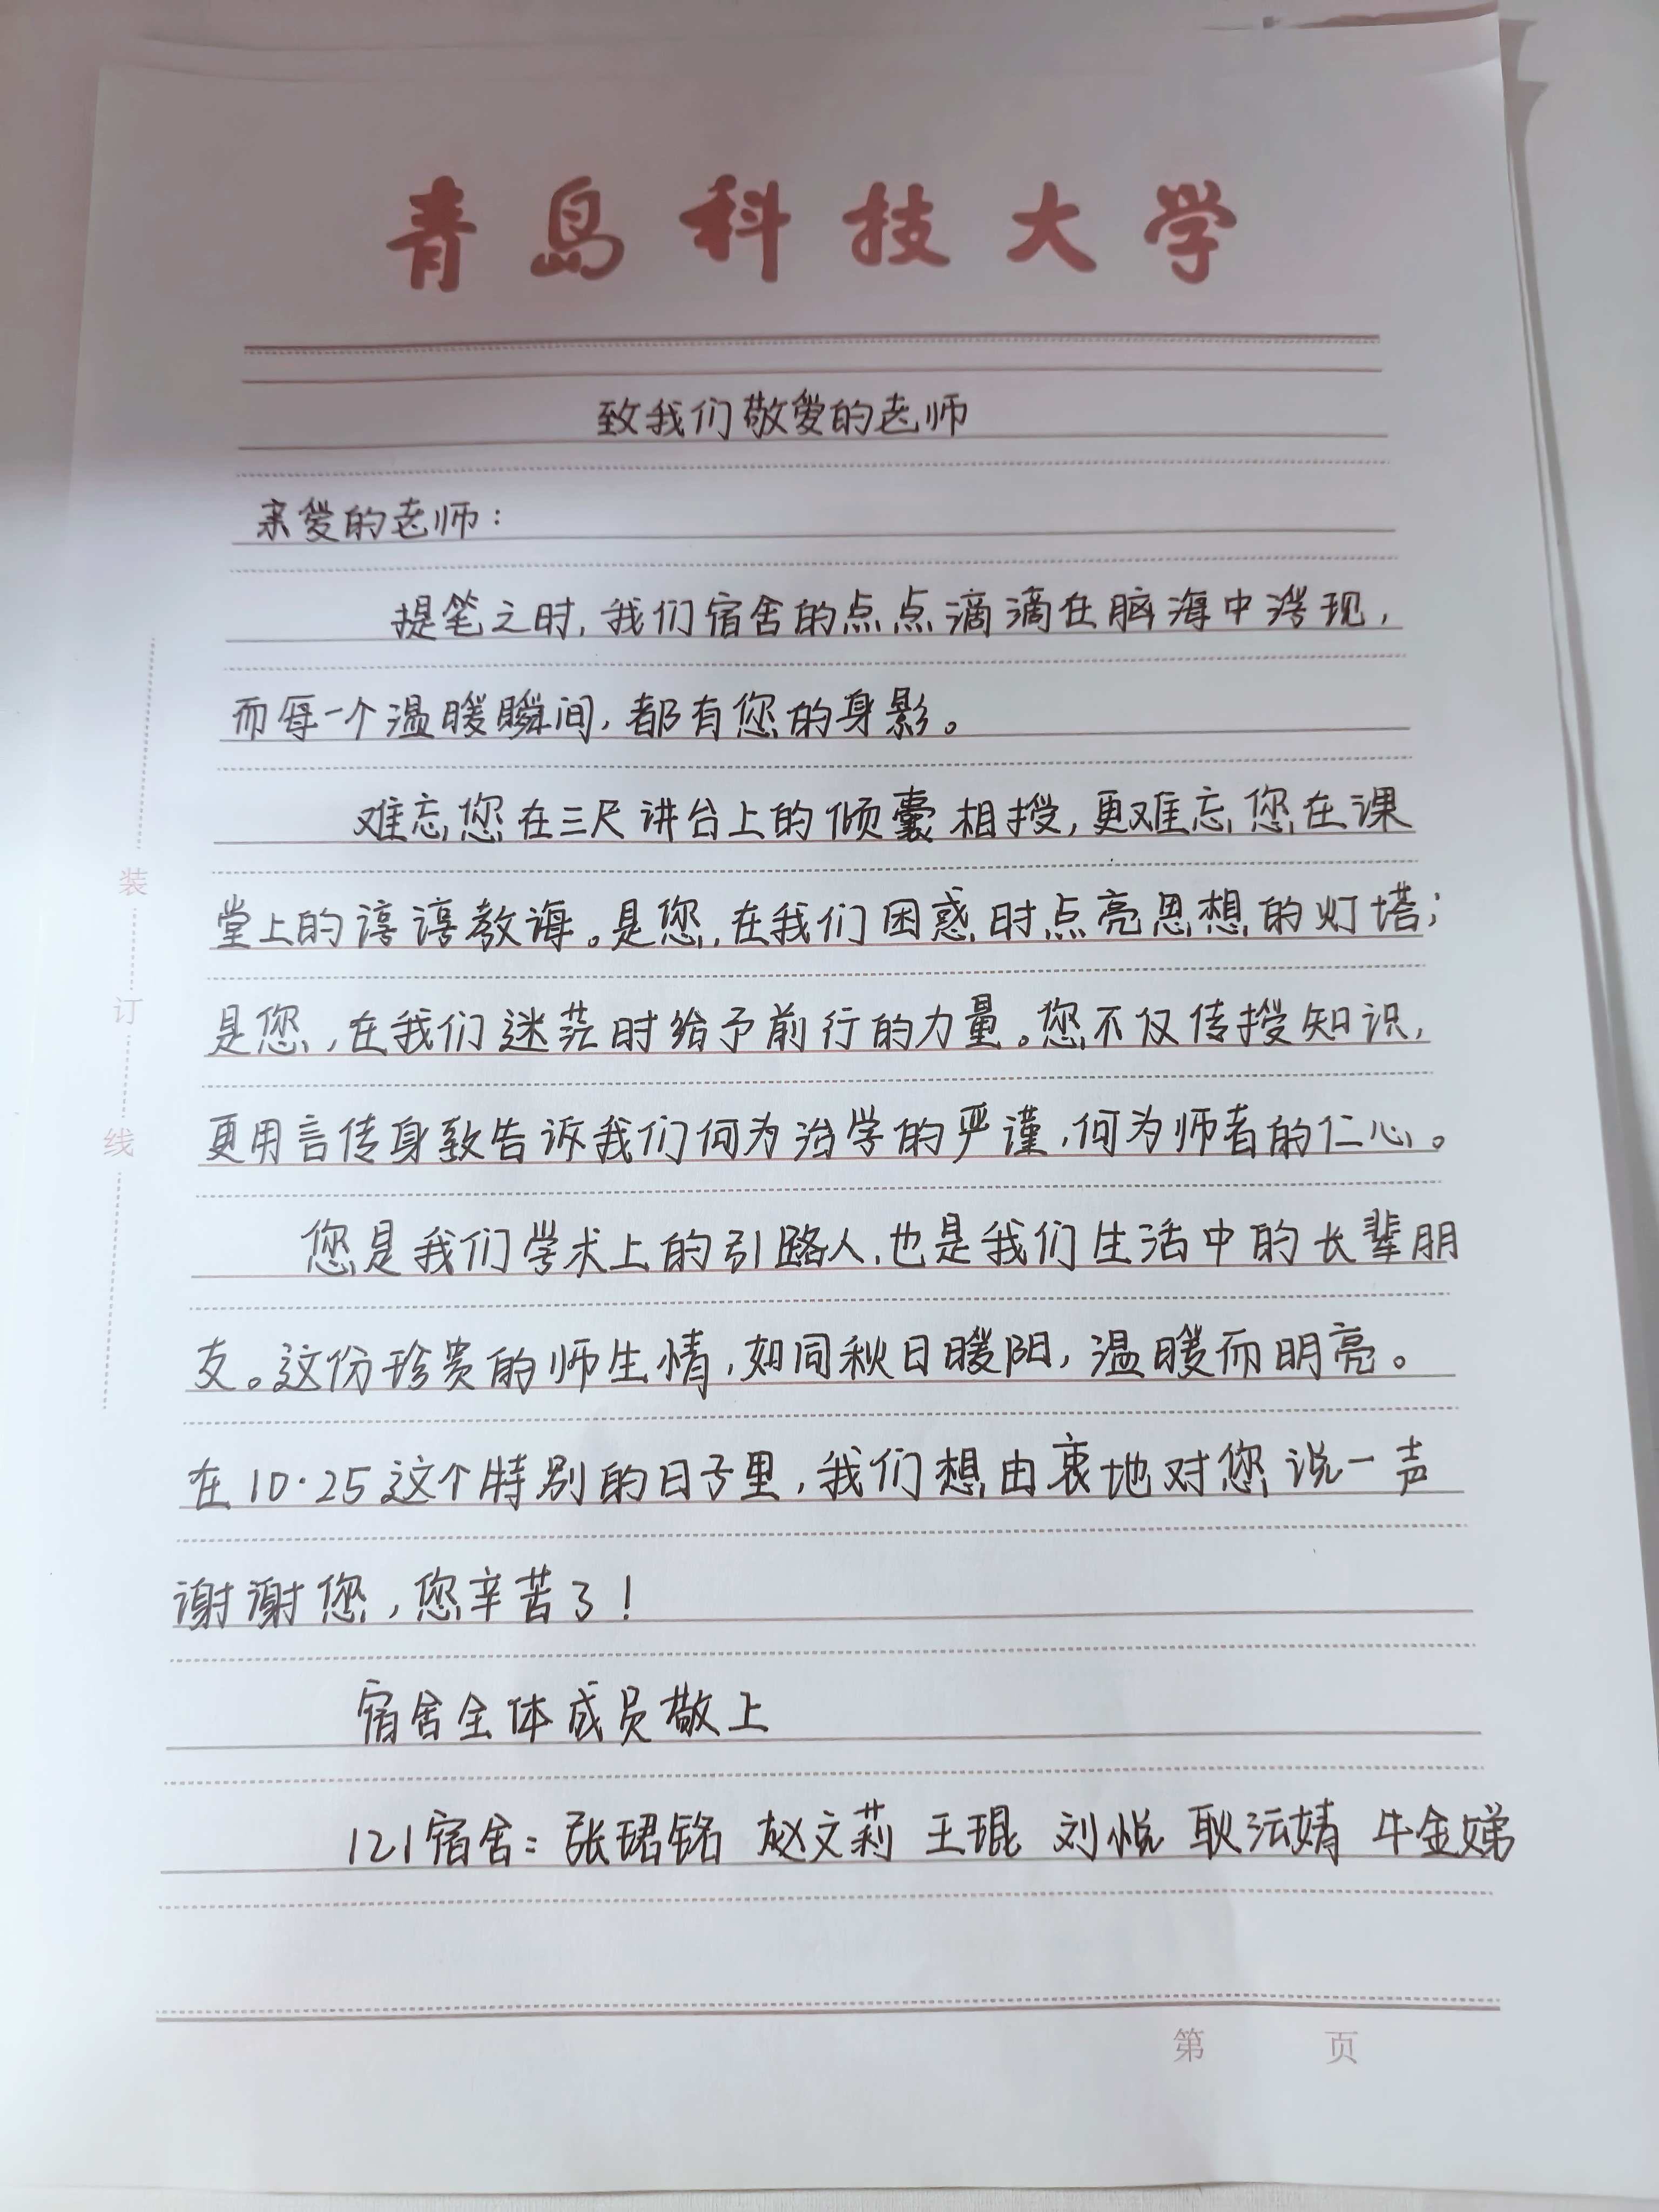 青岛科技大学
致我们敬爱的老师
亲爱的老师：
提笔之时，我们宿舍的点点滴滴在脑海中浮现，
而每一个温暖瞬间，都有您的身影。
难忘您在三尺讲台上的倾囊相授，更难忘您在课
堂上的谆谆教诲。是您，在我们困惑时点亮思想的灯塔；
是您，在我们迷茫时给予前行的力量。您不仅传授知识，
更用言传身教告诉我们何为治学的严谨，何为师者的仁心。
您是我们学术上的引路人，也是我们生活中的长辈朋
友。这份珍贵的师生情，如同秋日暖阳，温暖而明亮。
在10·25这个特别的日子里，我们想由衷地对您说一声
谢谢您，您辛苦了！
宿舍全体成员敬上
121宿舍：张珺铭 赵文莉 王琨 刘悦 耿沄婧 牛金娣
装
订
线
第 页